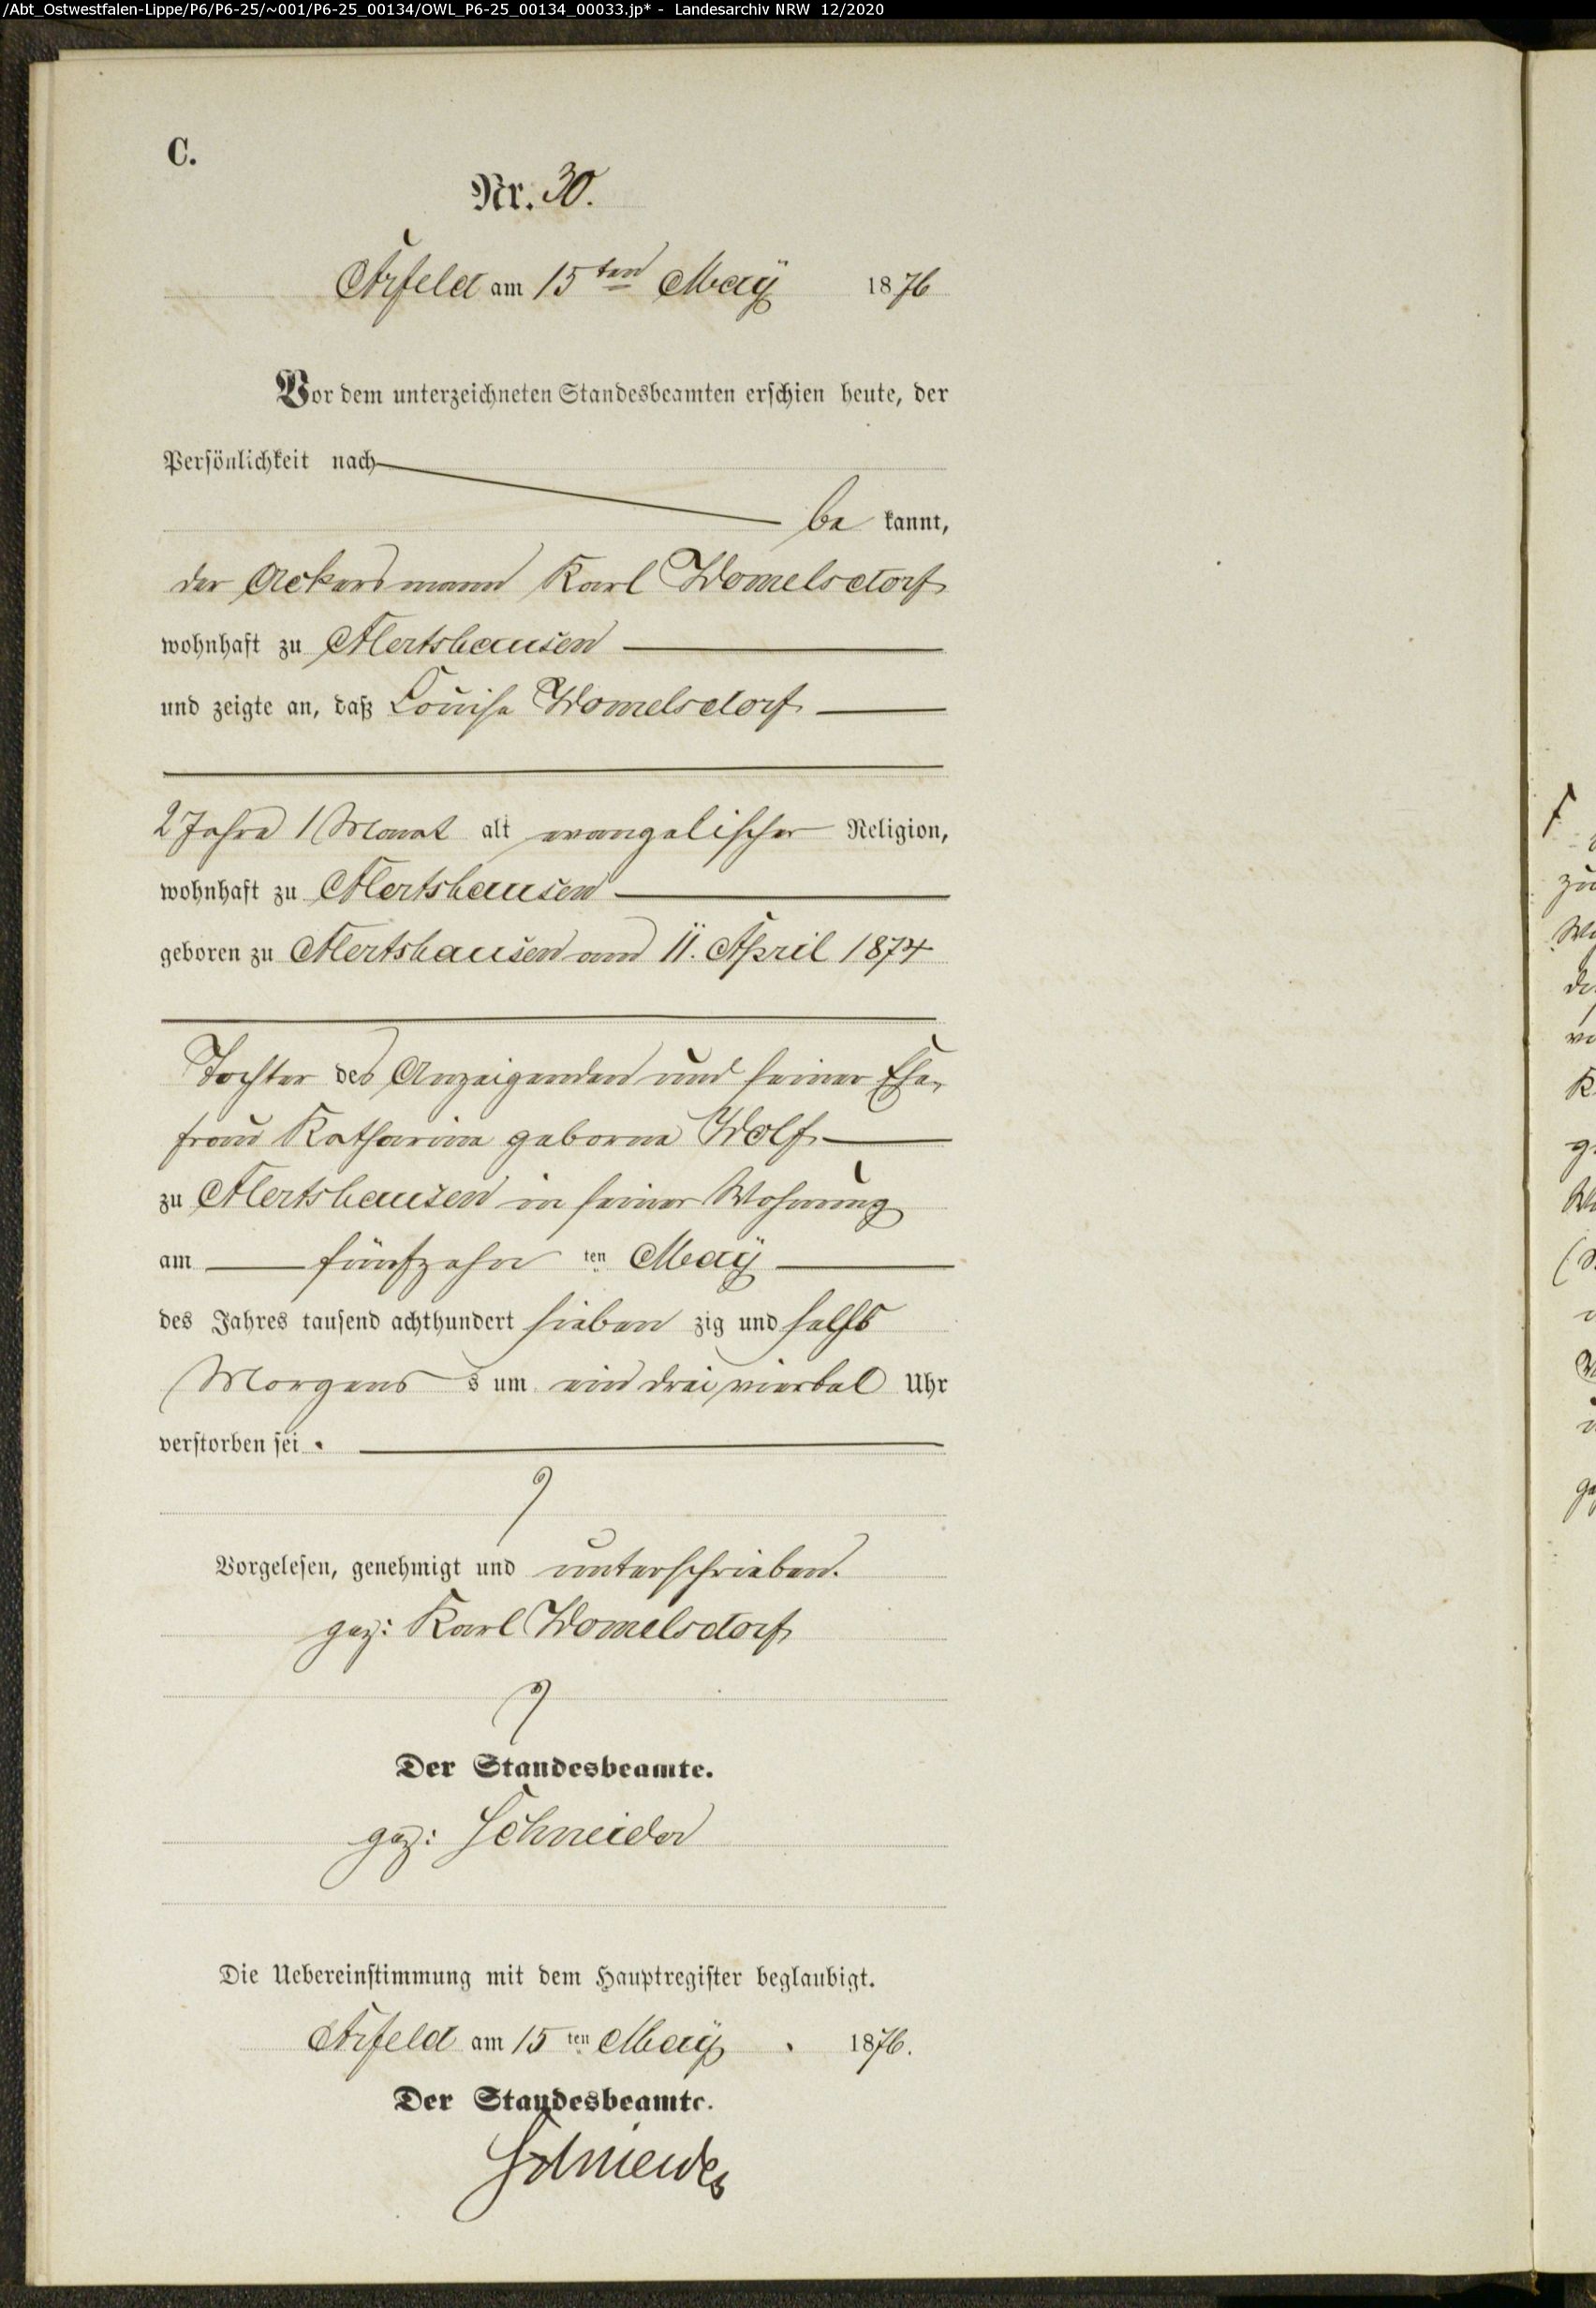 /Abt_Ostwestfalen-Lippe/P6/P6-25/~001/P6-25_00134/OWL_P6-25_00134_00033.jp* - Landesarchiv NRW 12/2020
C.
Nr. 30.
Arfeld am 15ten May 1876
Vor dem unterzeichneten Standesbeamten erschien heute, der
Persönlichkeit nach
be kannt,
der Ackersmann Karl Womelsdorf
wohnhaft zu Alertshausen
und zeigte an, daß Louise Womelsdorf
2 Jahre 1 Monat alt evangelischer Religion,
wohnhaft zu Alertshausen
geboren zu Alertshausen am 11. April 1874
Tochter des Anzeigenden und seiner Ehe-
frau Katharine geborne Wolf
zu Alertshausen in seiner Wohnung
am fünfzehn ten May
des Jahres tausend achthundert sieben zig und sechs
Morgens s um ein drei viertel Uhr
verstorben sei.
Vorgelesen, genehmigt und unterschrieben.
gez: Karl Womelsdorf
Der Standesbeamte.
gez: Schneider
Die Uebereinstimmung mit dem Hauptregister beglaubigt.
Arfeld am 15 ten May 1876.
Der Standesbeamte.
Schneider